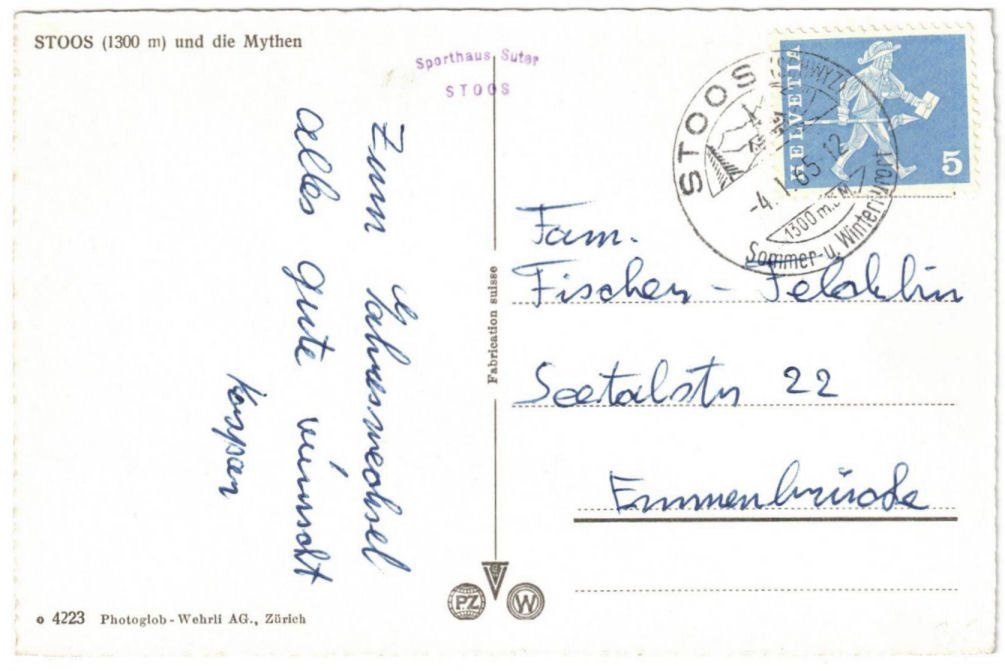 STOOS (1300 m) und die Mythen
Sporthaus Suter
STOOS
Zum Jahreswechsel
alles gute wünscht
Kaspar
Fabrication suisse
STOOS (SCHWYZ)
-4.1.65-12
1300 m.ü.M.
Sommer- u. Winterkurort
HELVETIA
5
Fam.
Fischer - Felchlin
Seetalstr 22
Emmenbrücke
PZ
W
4223 Photoglob-Wehrli AG., Zürich